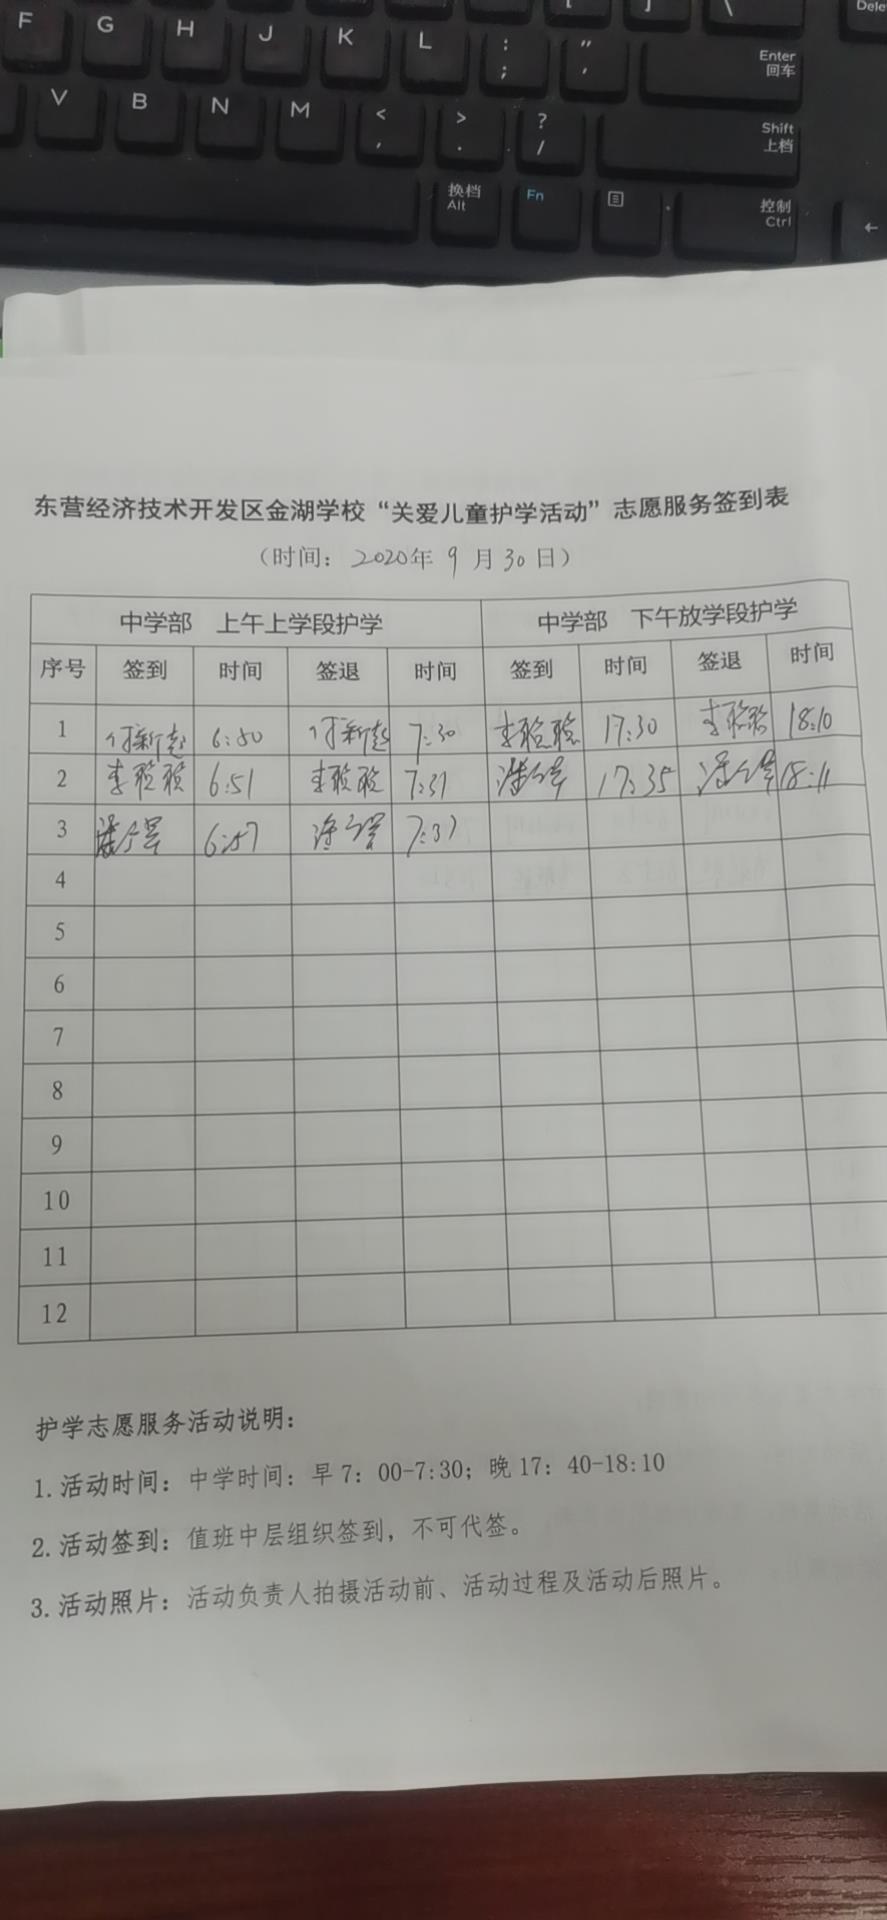 F G H J K L : ; " ' [ ] \ Dele
Enter 回车
V B N M < , > . ? /
Shift 上档
换档 Alt Fn 控制 Ctrl ←
东营经济技术开发区金湖学校“关爱儿童护学活动”志愿服务签到表
（时间：2020年 9 月 30 日）
中学部 上午上学段护学 中学部 下午放学段护学
序号 签到 时间 签退 时间 签到 时间 签退 时间
1 6:50 7:30 李聪聪 17:30 李聪聪 18:10
2 李聪聪 6:51 李聪聪 7:31 17:35 18:11
3 6:57 7:37
4
5
6
7
8
9
10
11
12
护学志愿服务活动说明：
1.活动时间：中学时间：早7：00-7:30；晚17：40-18:10
2.活动签到：值班中层组织签到，不可代签。
3.活动照片：活动负责人拍摄活动前、活动过程及活动后照片。